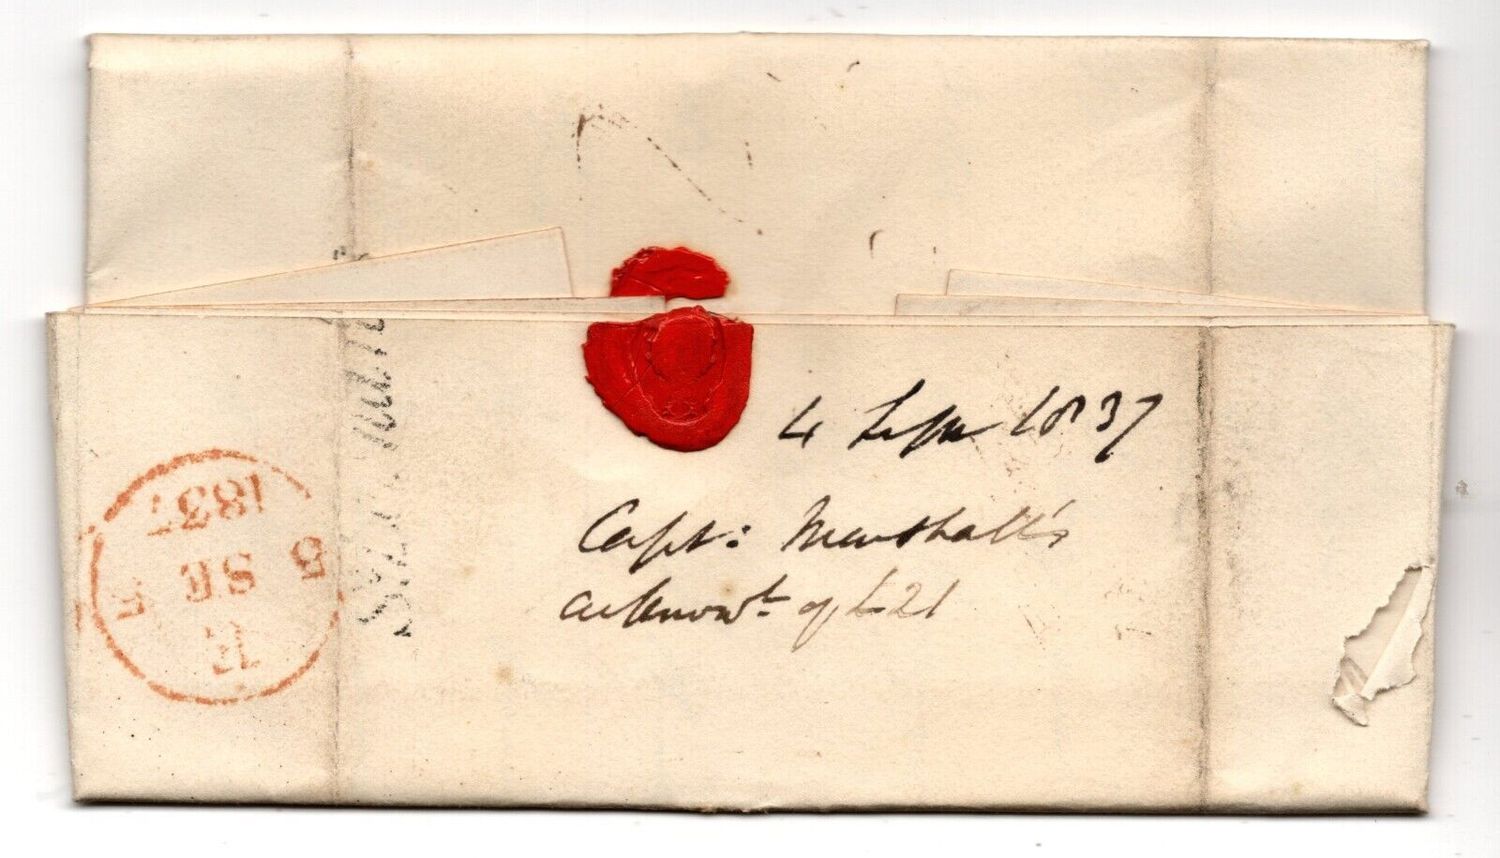 4 Septr 1837
Capt: Marshall's
acknowt of £21
5
SE
5
1837